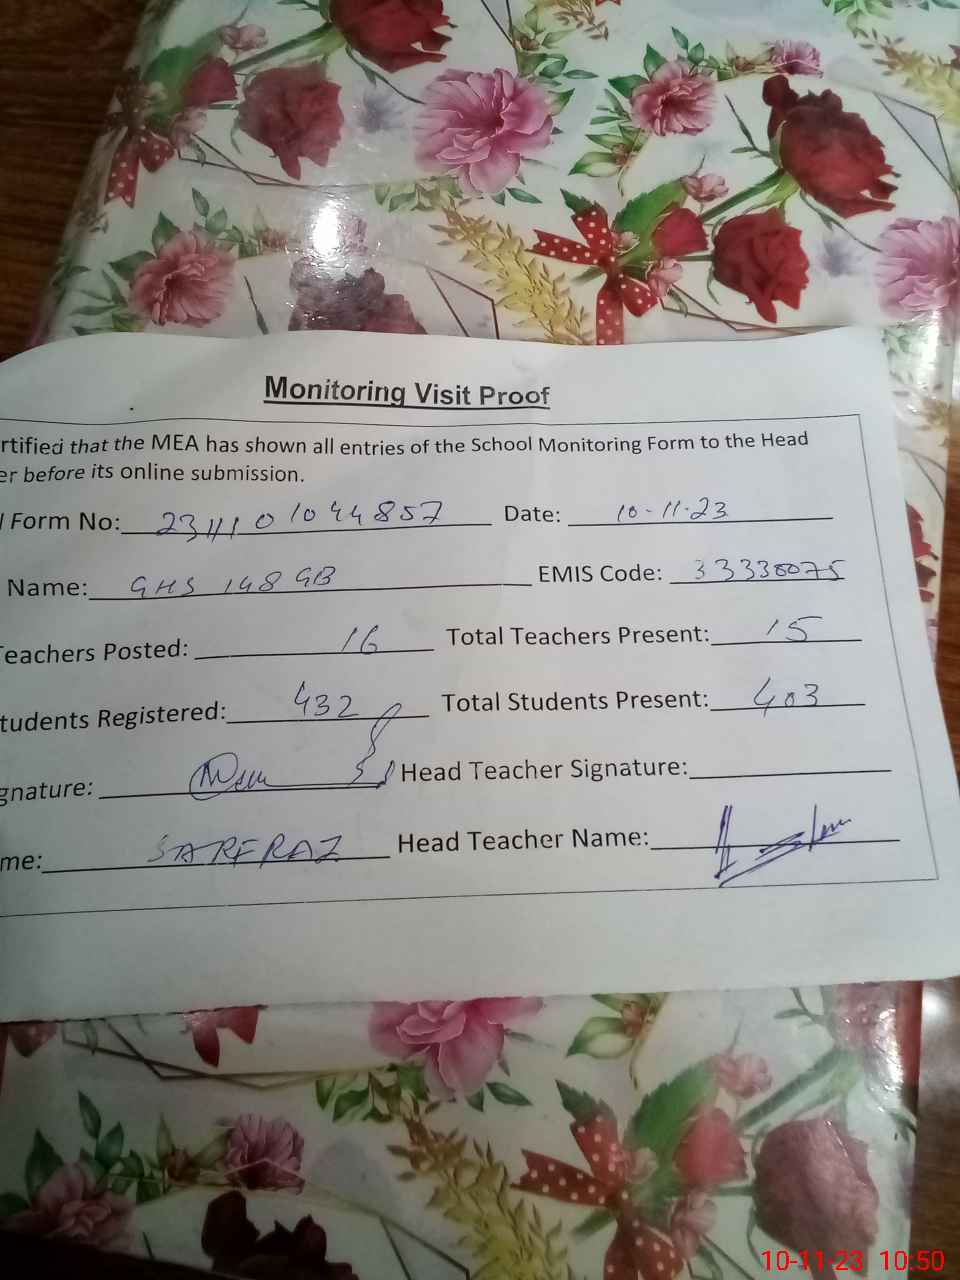 Monitoring Visit Proof
rtified that the MEA has shown all entries of the School Monitoring Form to the Head
er before its online submission.
l Form No: 2311101044857 Date: 10-11-23
Name: GHS 148 GB EMIS Code: 33330075
Teachers Posted: 16 Total Teachers Present: 15
tudents Registered: 432 Total Students Present: 403
gnature: Head Teacher Signature:
me: SARFRAZ Head Teacher Name:
10-11-23 10:50